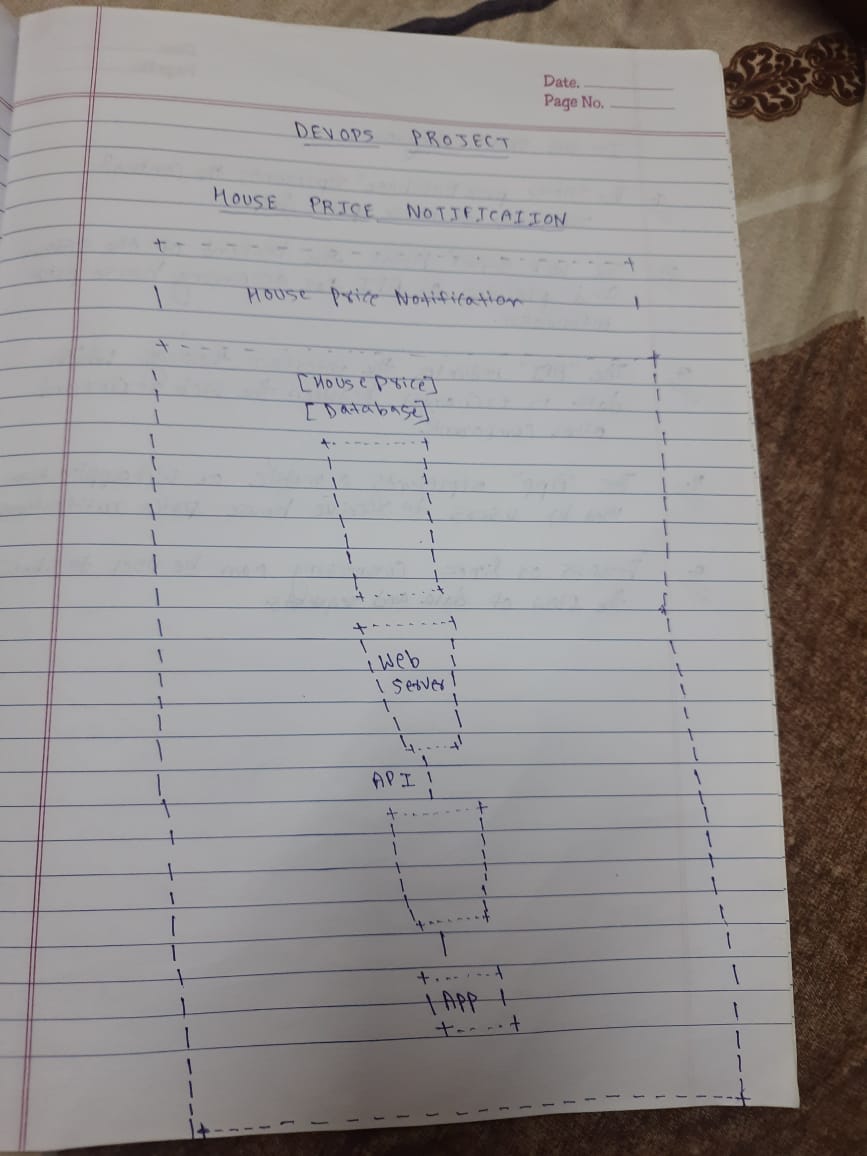 Date.
Page No.
DEVOPS PROJECT
HOUSE PRICE NOTIFICATION
House Price Notification
[House Price]
[Database]
Web
Server
API
APP